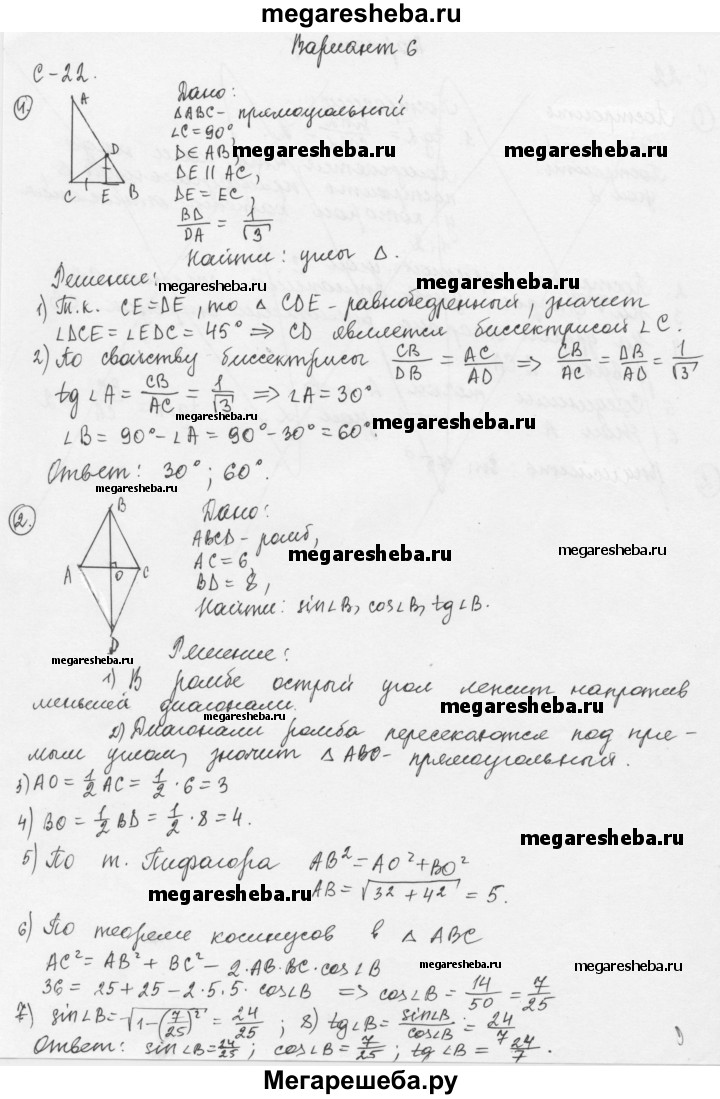 megaresheba.ru
Вариант 6
С-22.
1.
A
D
C E B
Дано:
△ABC - прямоугольный
∠C = 90°,
D ∈ AB,
DE ∥ AC,
DE = EC,
BD/DA = 1/√3
Найти: углы △.
megaresheba.ru
megaresheba.ru
Решение:
megaresheba.ru
megaresheba.ru
1) Т.к. CE=DE, то △ CDE - равнобедренный, значит
∠DCE = ∠EDC = 45° ⇒ CD является биссектрисой ∠C.
2) По свойству биссектрисы CB/DB = AC/AD ⇒ CB/AC = DB/AD = 1/√3
tg∠A = CB/AC = 1/√3 ⇒ ∠A = 30°
megaresheba.ru
megaresheba.ru
∠B = 90° - ∠A = 90° - 30° = 60°.
Ответ: 30°; 60°.
megaresheba.ru
2.
B
A O C
D
Дано:
ABCD - ромб,
AC = 6,
BD = 8,
Найти: sin∠B, cos∠B, tg∠B.
megaresheba.ru
megaresheba.ru
Решение:
megaresheba.ru
1) В ромбе острый угол лежит напротив
меньшей диагонали.
megaresheba.ru
megaresheba.ru
2) Диагонали ромба пересекаются под пря-
мым углом, значит △ ABO - прямоугольный.
3) AO = 1/2 AC = 1/2 · 6 = 3
4) BO = 1/2 BD = 1/2 · 8 = 4.
megaresheba.ru
5) По т. Пифагора AB² = AO² + BO²
AB = √3² + 4² = 5.
megaresheba.ru
6) По теореме косинусов в △ ABC
AC² = AB² + BC² - 2·AB·BC·cos∠B
megaresheba.ru
megaresheba.ru
36 = 25 + 25 - 2·5·5·cos∠B ⇒ cos∠B = 14/50 = 7/25
7) sin∠B = √1-(7/25)² = 24/25; 8) tg∠B = sin∠B/cos∠B = 24/7
Ответ: sin∠B = 24/25; cos∠B = 7/25; tg∠B = 24/7.
Мегарешеба.ру